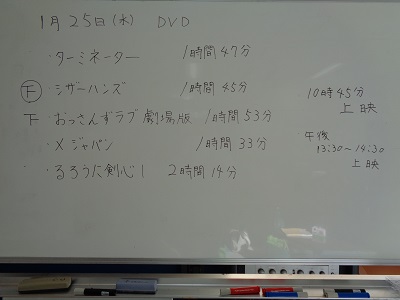 1月25日(水) DVD
・ターミネーター 1時間47分
下 ・シザーハンズ 1時間45分
下 ・おっさんずラブ 劇場版 1時間53分
・X ジャパン 1時間33分
・るろうに剣心1 2時間14分
10時45分
上映
午後
13:30~14:30
上映